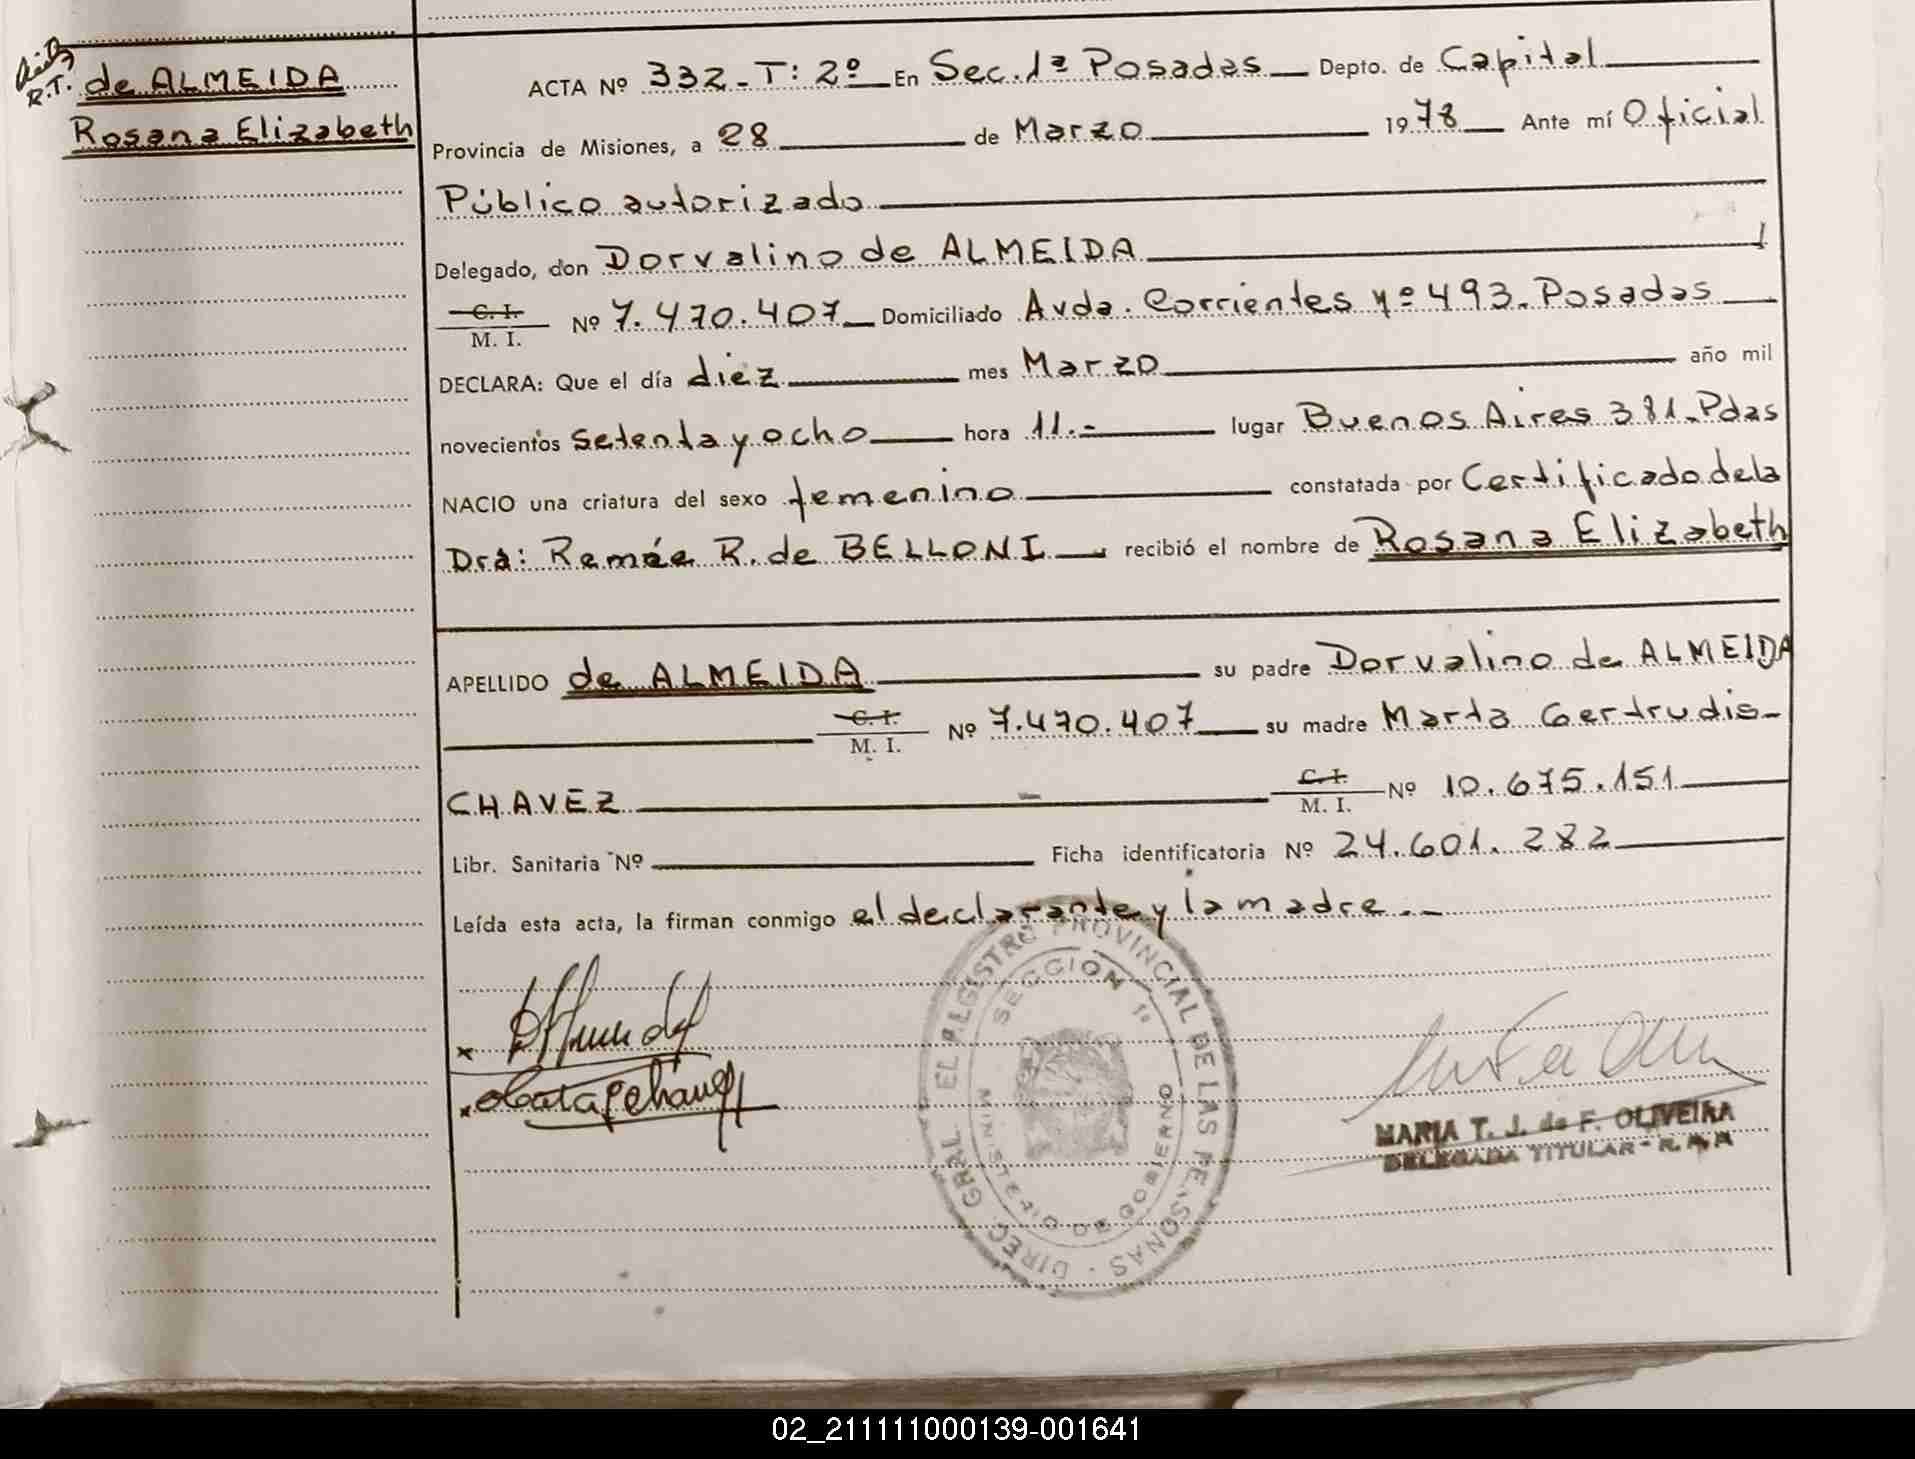 R.T.
de ALMEIDA
Rosana Elizabeth
ACTA Nº 332_T: 2º En Sec. 1ª Posadas Depto. de Capital
Provincia de Misiones, a 28 de Marzo 1978 Ante mí Oficial
Público autorizado
Delegado, don Dorvalino de ALMEIDA
C. I.
M. I. Nº 7.470.407 Domiciliado Avda. Corrientes Nº 493. Posadas
DECLARA: Que el día diez mes Marzo año mil
novecientos setenta y ocho hora 11.- lugar Buenos Aires 381. Pdas
NACIO una criatura del sexo femenino constatada por Certificado de la
Dra: Remée R. de BELLONI recibió el nombre de Rosana Elizabeth
APELLIDO de ALMEIDA su padre Dorvalino de ALMEIDA
C. I.
M. I. Nº 7.470.407 su madre Marta Gertrudis-
CHAVEZ C. I.
M. I. Nº 10.675.151
Libr. Sanitaria Nº Ficha identificatoria Nº 24.601.282
Leída esta acta, la firman conmigo el declarante y la madre.-
DIREC. GRAL. EL REGISTRO PROVINCIAL DE LAS PERSONAS
SECCION 1ª
MINISTERIO DE GOBIERNO
MARIA T. J. de F. OLIVEIRA
DELEGADA TITULAR - R. P. P.
02_211111000139-001641